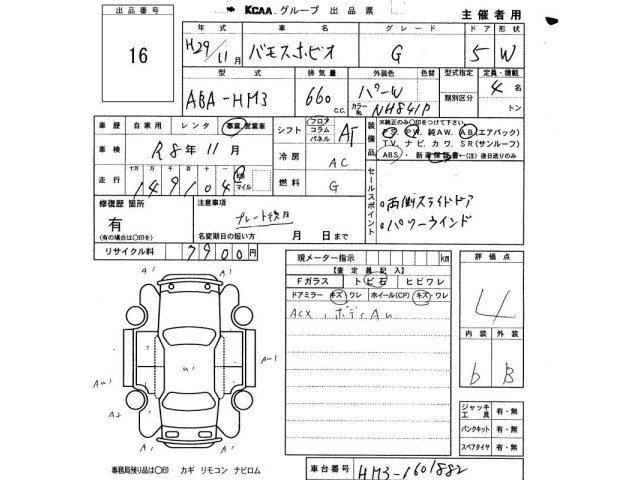 出品番号
16
KCAA グループ 出品票
主催者用
年式
車名
グレード
ドア
形状
H29/11月
バモスホビオ
G
5
W
型式
排気量
外装色
色替
型式指定
定員・積載
ABA-HM3
660 c.c.
パーW
カラーNo. NH841P
類別区分
4名
トン
車歴
自家用
レンタ
事業
営業車
車検
R8年11月
走行
十万
万
千
百
十
149104
km
マイル
シフト
フロア
コラム
パネル
AT
冷房
AC
燃料
G
装備品
※純正のみ〇印をつけて下さい。
PS. PW. 純AW. AB(エアバック)
TV. ナビ. カワ. SR(サンルーフ)
ABS. 新車保証書←(注)後日送りのみ
セールスポイント
。両側スライドドア
。パワーウインド
修復歴
箇所
有
(有の場合は〇印を)
注意事項
プレート後日
名変期日の短い方
月
日まで
リサイクル料
7900円
現メーター指示
km
【査定員記入】
Fガラス
トビ石
ヒビワレ
ドアミラー
キズ・ワレ
ホイール(CP)
キズ・ワレ
ACX、ボディAu
評価点
4
内装
外装
b
B
A1
A1
A1
A1
Au1
Au1
u1
A2
A1
A1
ジャッキ工具
有・無
パンクキット
有・無
スペアタイヤ
有・無
事務局預り品は〇印
カギ
リモコン
ナビロム
車台番号
HM3-1601882